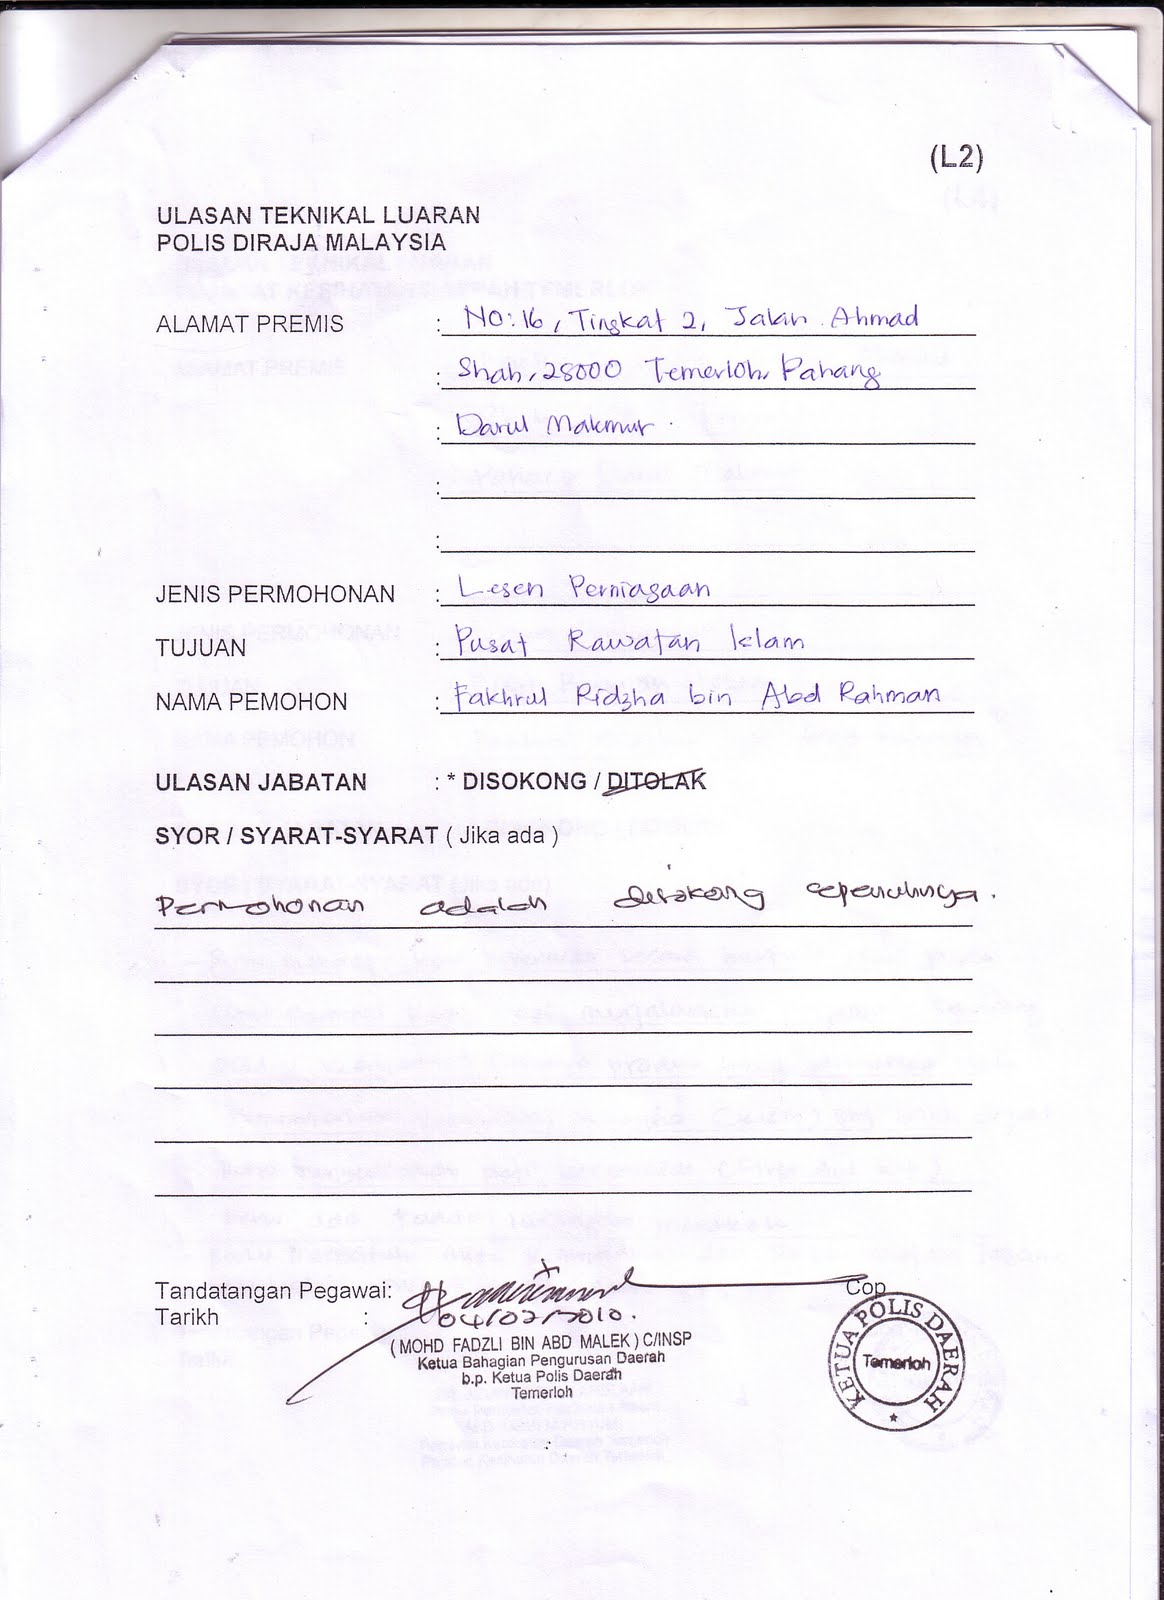 (L2)
ULASAN TEKNIKAL LUARAN
POLIS DIRAJA MALAYSIA
ALAMAT PREMIS : NO: 16, Tingkat 2, Jalan Ahmad
: Shah, 28000 Temerloh, Pahang
: Darul Makmur.
:
:
JENIS PERMOHONAN : Lesen Perniagaan
TUJUAN : Pusat Rawatan Islam
NAMA PEMOHON : Fakhrul Ridzha bin Abd Rahman
ULASAN JABATAN : * DISOKONG / DITOLAK
SYOR / SYARAT-SYARAT ( Jika ada )
Permohonan adalah disokong sepenuhnya.
Tandatangan Pegawai: Cop
Tarikh : 04/02/2010.
( MOHD FADZLI BIN ABD MALEK ) C/INSP
Ketua Bahagian Pengurusan Daerah
b.p. Ketua Polis Daerah
Temerloh
KETUA POLIS DAERAH
Temerloh